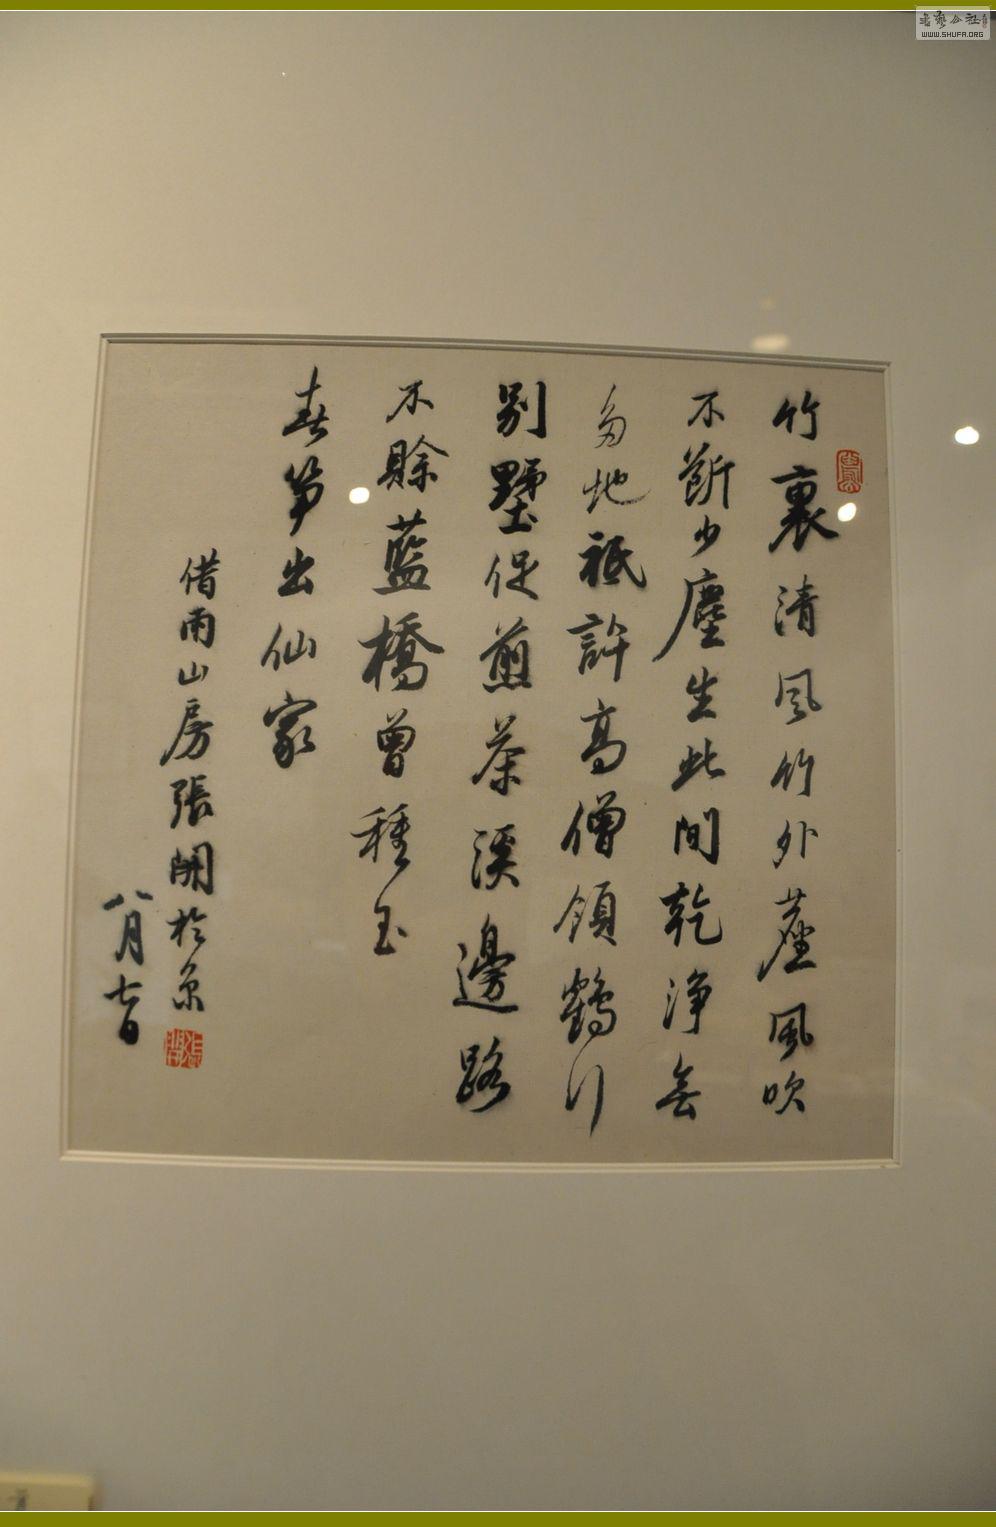 竹裏清風竹外塵風吹
不斷少塵生此間乾淨無
多地祇許高僧領鶴行
別墅促煎茶溪邊路
不賒藍橋曾種玉
春笋出仙家
借雨山房張開於京
八月七日
WWW.SHUFA.ORG